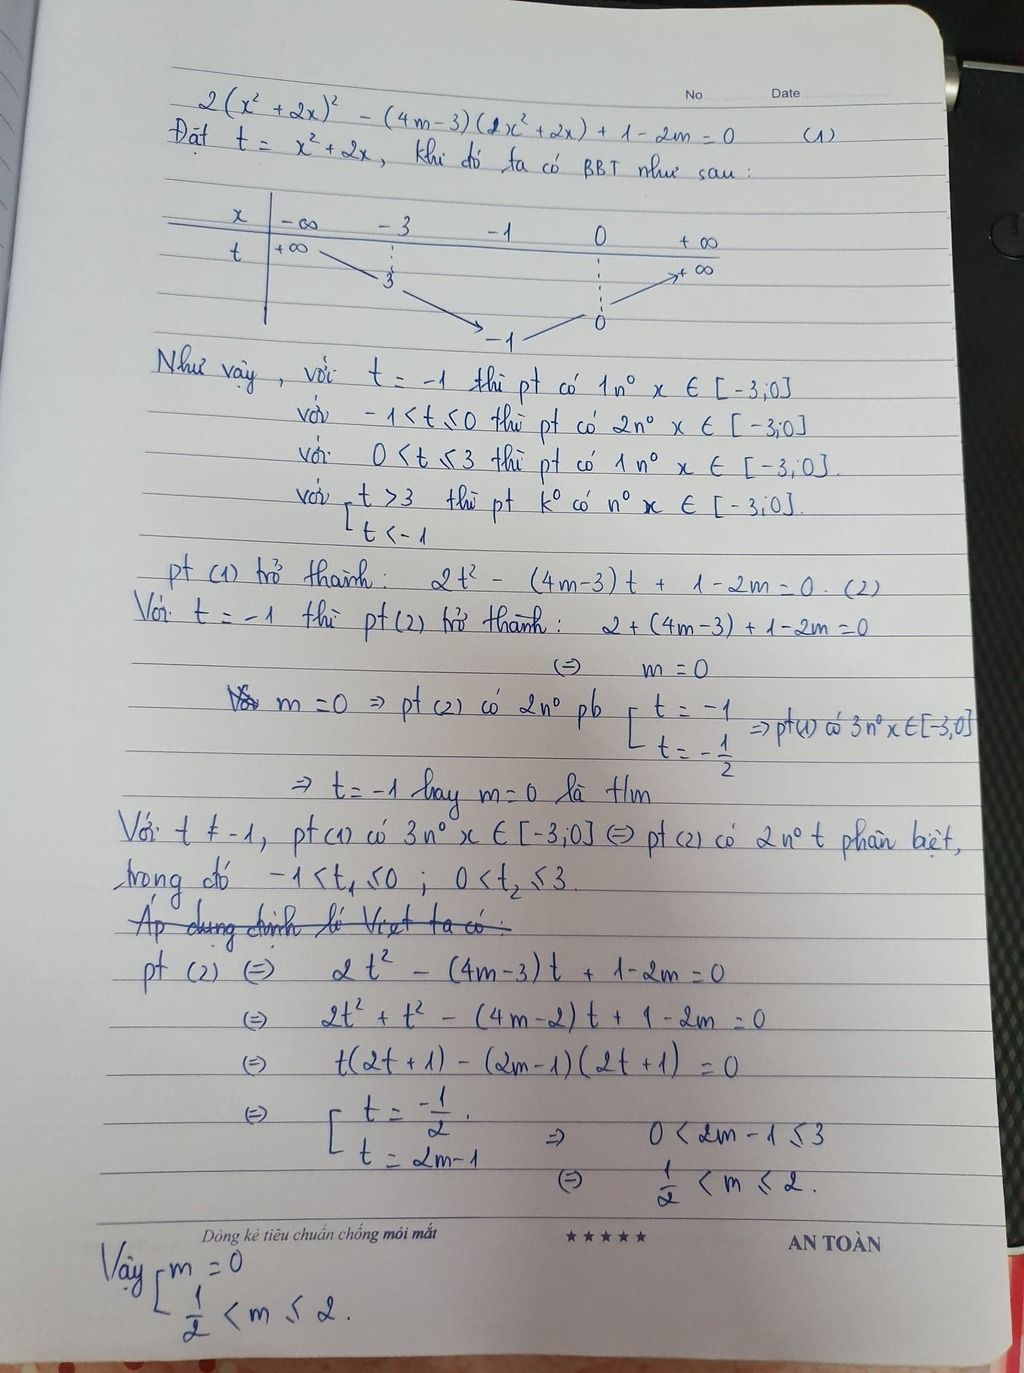 No Date
2(x² + 2x)² - (4m-3)(2x² + 2x) + 1-2m = 0 (1)
Đặt t = x² + 2x, khi đó ta có BBT như sau:
x -∞ -3 -1 0 +∞
t +∞ 3 -1 0 +∞
Như vậy, với t = -1 thì pt có 1n° x ∈ [-3;0]
với -1 < t ≤ 0 thì pt có 2n° x ∈ [-3;0]
với 0 < t ≤ 3 thì pt có 1n° x ∈ [-3;0].
với [ t > 3 thì pt k° có n° x ∈ [-3;0].
t < -1
pt (1) trở thành: 2t² - (4m-3)t + 1-2m = 0. (2)
Với t = -1 thì pt (2) trở thành: 2 + (4m-3) + 1-2m = 0
(=) m = 0
m = 0 ⇒ pt (2) có 2n° pb [ t = -1 ⇒ pt(1) có 3n° x ∈ [-3;0]
t = -1/2
⇒ t = -1 hay m = 0 là t/m
Với t ≠ -1, pt (1) có 3n° x ∈ [-3;0] (=) pt (2) có 2n° t phân biệt,
trong đó -1 < t₁ ≤ 0 ; 0 < t₂ ≤ 3.
Áp dụng định lí Viet ta có:
pt (2) (=) 2t² - (4m-3)t + 1-2m = 0
(=) 2t² + t² - (4m-2)t + 1-2m = 0
(=) t(2t+1) - (2m-1)(2t+1) = 0
(=) [ t = -1/2.
t = 2m-1 ⇒ 0 < 2m-1 ≤ 3
(=) 1/2 < m ≤ 2.
Dòng kẻ tiêu chuẩn chống mỏi mắt ★★★★★ AN TOÀN
Vậy [ m = 0
1/2 < m ≤ 2.